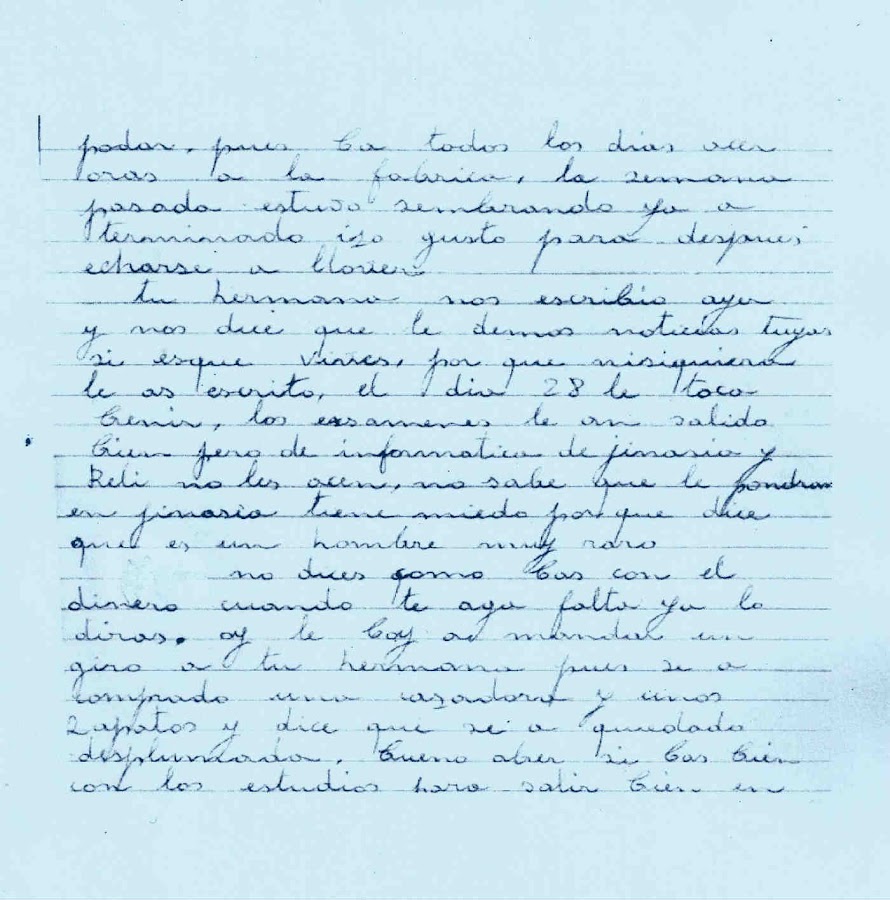 podar, pues ba todos los dias acer
oras a la fabrica, la semana
pasada estuvo sembrando ya a
terminado izo gusto para despues
echarse a llover
tu hermana nos escribio ayer
y nos dice que le demos noticias tuyas
si esque vives, por que nisiquiera
le as escrito, el dia 28 le toca
benir, los exsamenes le an salido
bien pero de informatica de jinasia y
Reli no les acen, no sabe que le pondran
en jinasia tiene miedo por que dice
que es un hombre muy raro
no dices como bas con el
dinero cuando te aga falta ya lo
diras. oy le boy a mandar un
giro a tu hermana pues se a
comprado una cazadora y unos
zapatos y dice que se a quedado
desplumada. bueno aber si bas bien
con los estudios para salir bien en